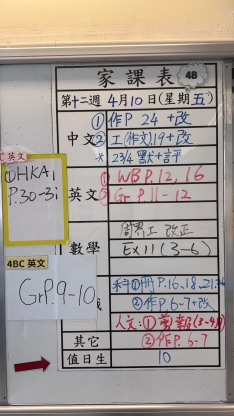 家課表 4B
第十二週 4月10日(星期五)
中文
①作P 24 +改
②工(作文)19+改
* 23/4 默+評
英文
①WB P.12, 16
②Gr P.11-12
C 英文
①HKA1
P.30-31
數學
周界工 改正
Ex11(3-6)
4BC 英文
GrP.9-10
科①冊P.16,18,21,
②作P.6-7+改
人文:①
②作P.6-7
其它
值日生
10